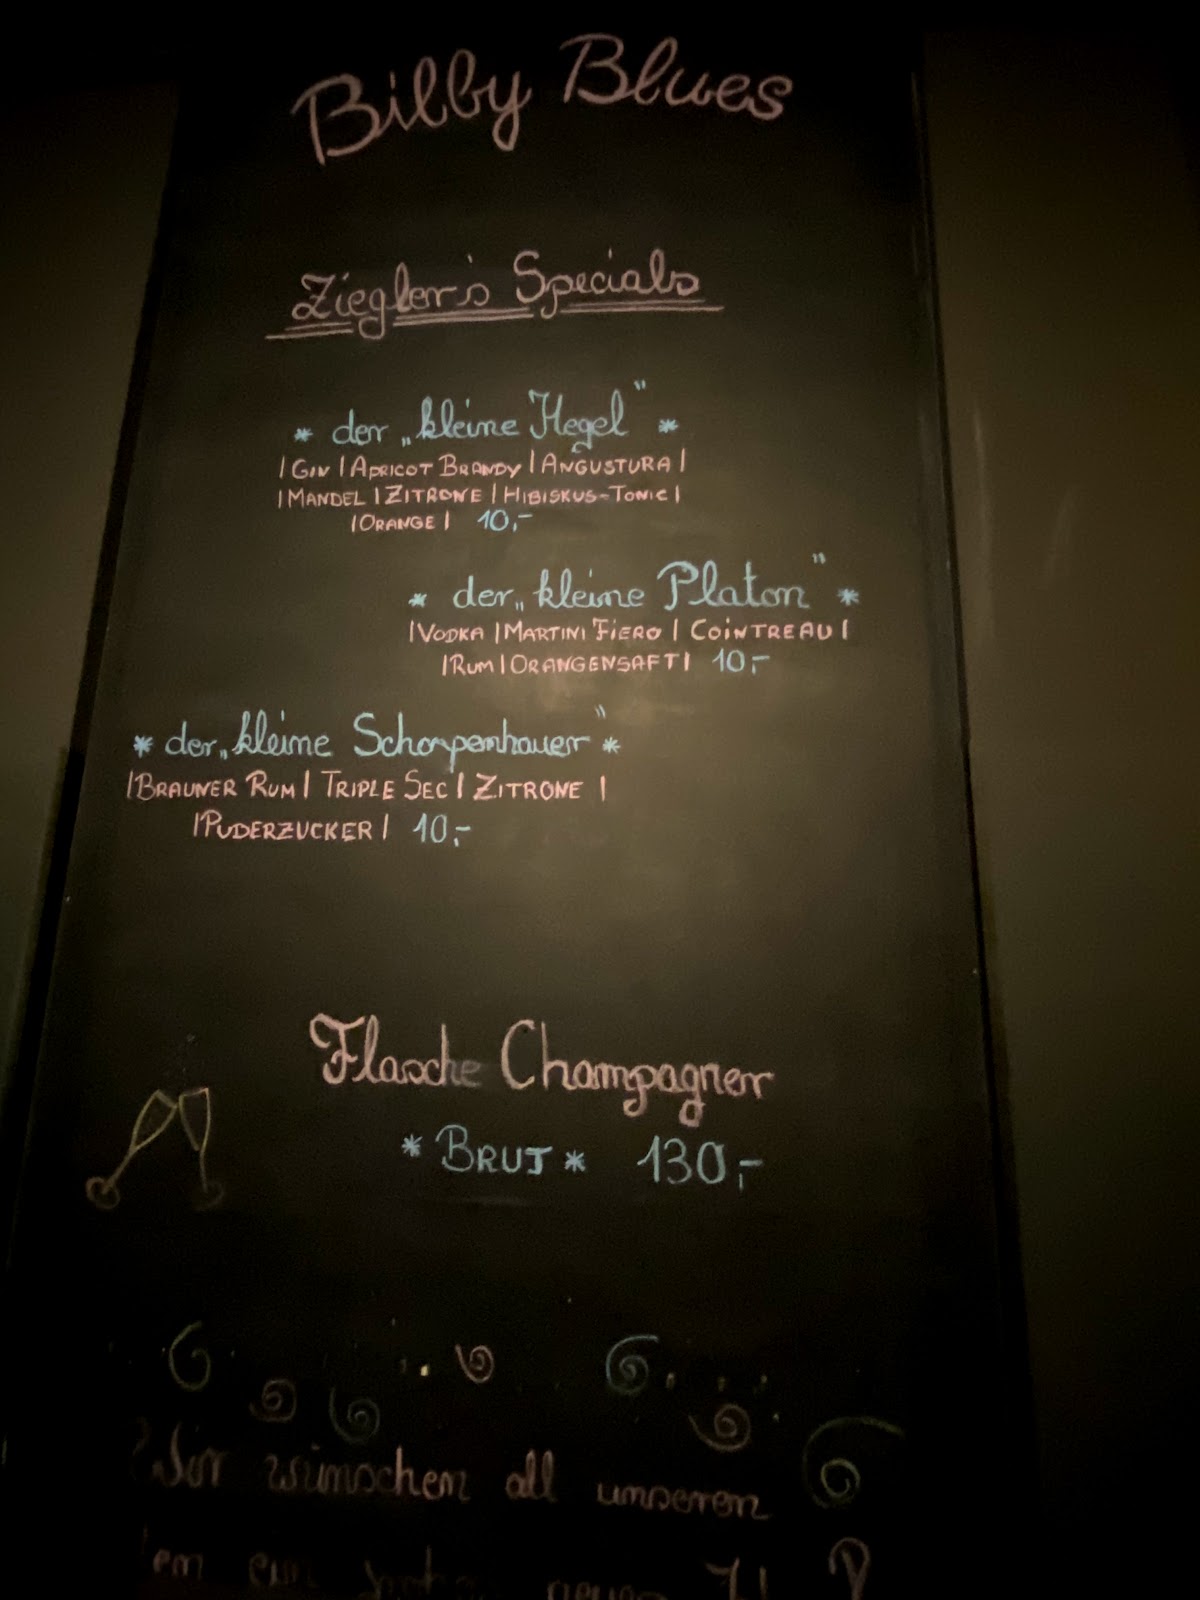 Billy Blues
Ziegler's Specials
* der „kleine Hegel" *
| GIN | APRICOT BRANDY | ANGUSTURA |
| MANDEL | ZITRONE | HIBISKUS-TONIC |
| ORANGE | 10,-
* der „kleine Platon" *
| VODKA | MARTINI FIERO | COINTREAU |
| RUM | ORANGENSAFT | 10,-
* der „kleine Schorpenhauer" *
| BRAUNER RUM | TRIPLE SEC | ZITRONE |
| PUDERZUCKER | 10,-
Flasche Champagner
* BRUT * 130,-
Wir wünschen all unseren
neues